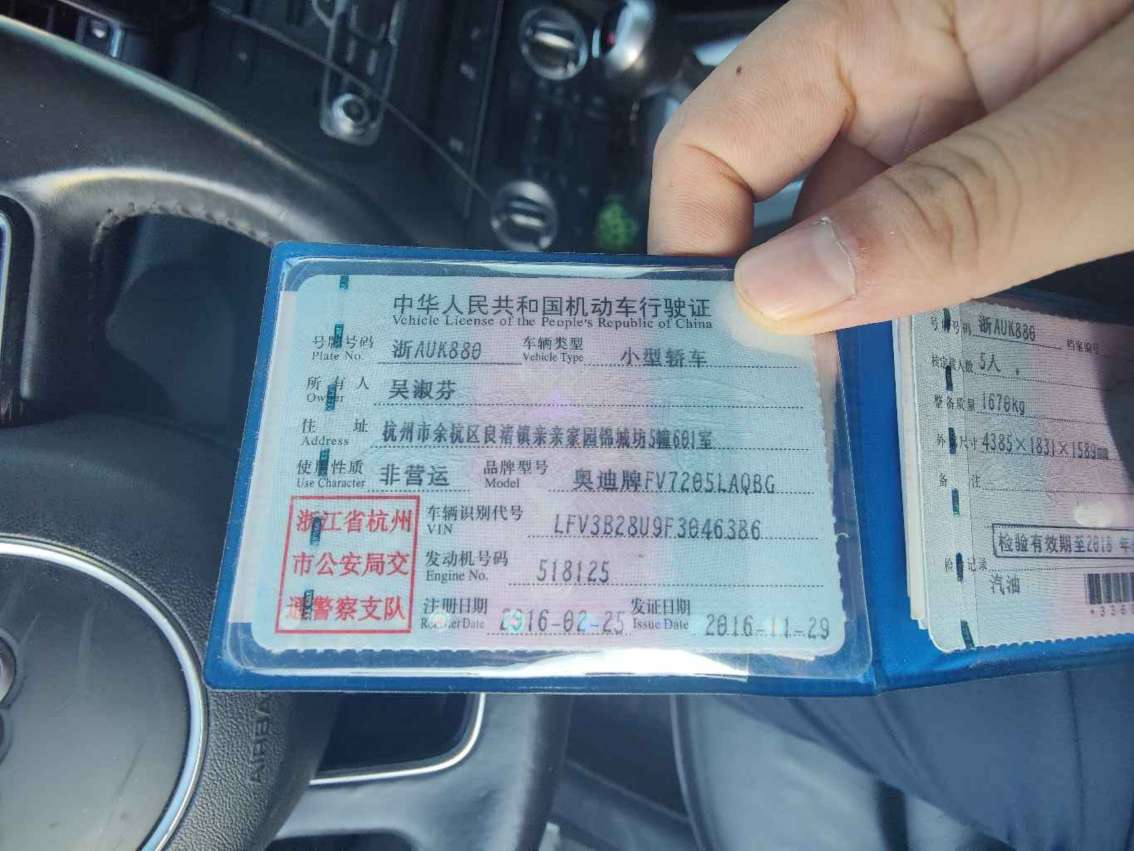 中华人民共和国机动车行驶证
Vehicle License of the People's Republic of China
号牌号码 浙AUK880 车辆类型 小型轿车
Plate No. Vehicle Type
所有人 吴淑芬
Owner
住址 杭州市余杭区良渚镇亲亲家园锦城坊5幢601室
Address
使用性质 非营运 品牌型号 奥迪牌FV7205LAQBG
Use Character Model
浙江省杭州
市公安局交
通警察支队
车辆识别代号 LFV3B28U9F3046386
VIN
发动机号码 518125
Engine No.
注册日期 2016-02-25 发证日期 2016-11-29
Register Date Issue Date
号牌号码 浙AUK880 档案编号
核定载人数 5人
整备质量 1670kg
外廓尺寸 4385×1831×1589mm
备注
检验有效期至2018 年
检验记录
汽油
AIRBA